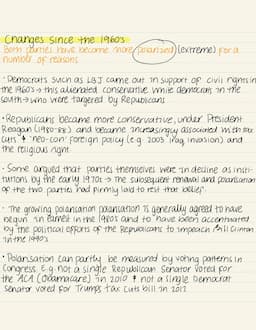 Changes since the 1960's
Both parties have become more polarised (extreme) for a
number of reasons
· Democrats such as LBJ came out in support of civil rights in
the 1960's → this alienated conservative white democrats in the
south → who were targeted by Republicans
· Republicans became more conservative, under President
Reagan (1980-88) and became increasingly associated with tax
cuts & 'neo-con' foreign policy (e.g. 2003 Iraq invasion) and
the religious right.
· Some argued that parties themselves were in decline as insti-
tutions by the early 1970s → The subsequent renewal and polarisation
of the two parties had firmly laid to rest that belief.
· The growing polarisation polarisation is generally agreed to have
begun in earnest in the 1980s and to have been accentuated
by the political efforts of the Republicans to impeach Bill Clinton
in the 1990s
· Polarisation can partly be measured by voting patterns in
Congress E.g. not a single Republican Senator voted for
the ACA (Obamacare) in 2010 & not a single Democrat
senator voted for Trumps tax cuts bill in 2017.